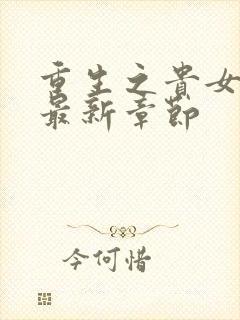 重生之貴女
最新章節
今何惜